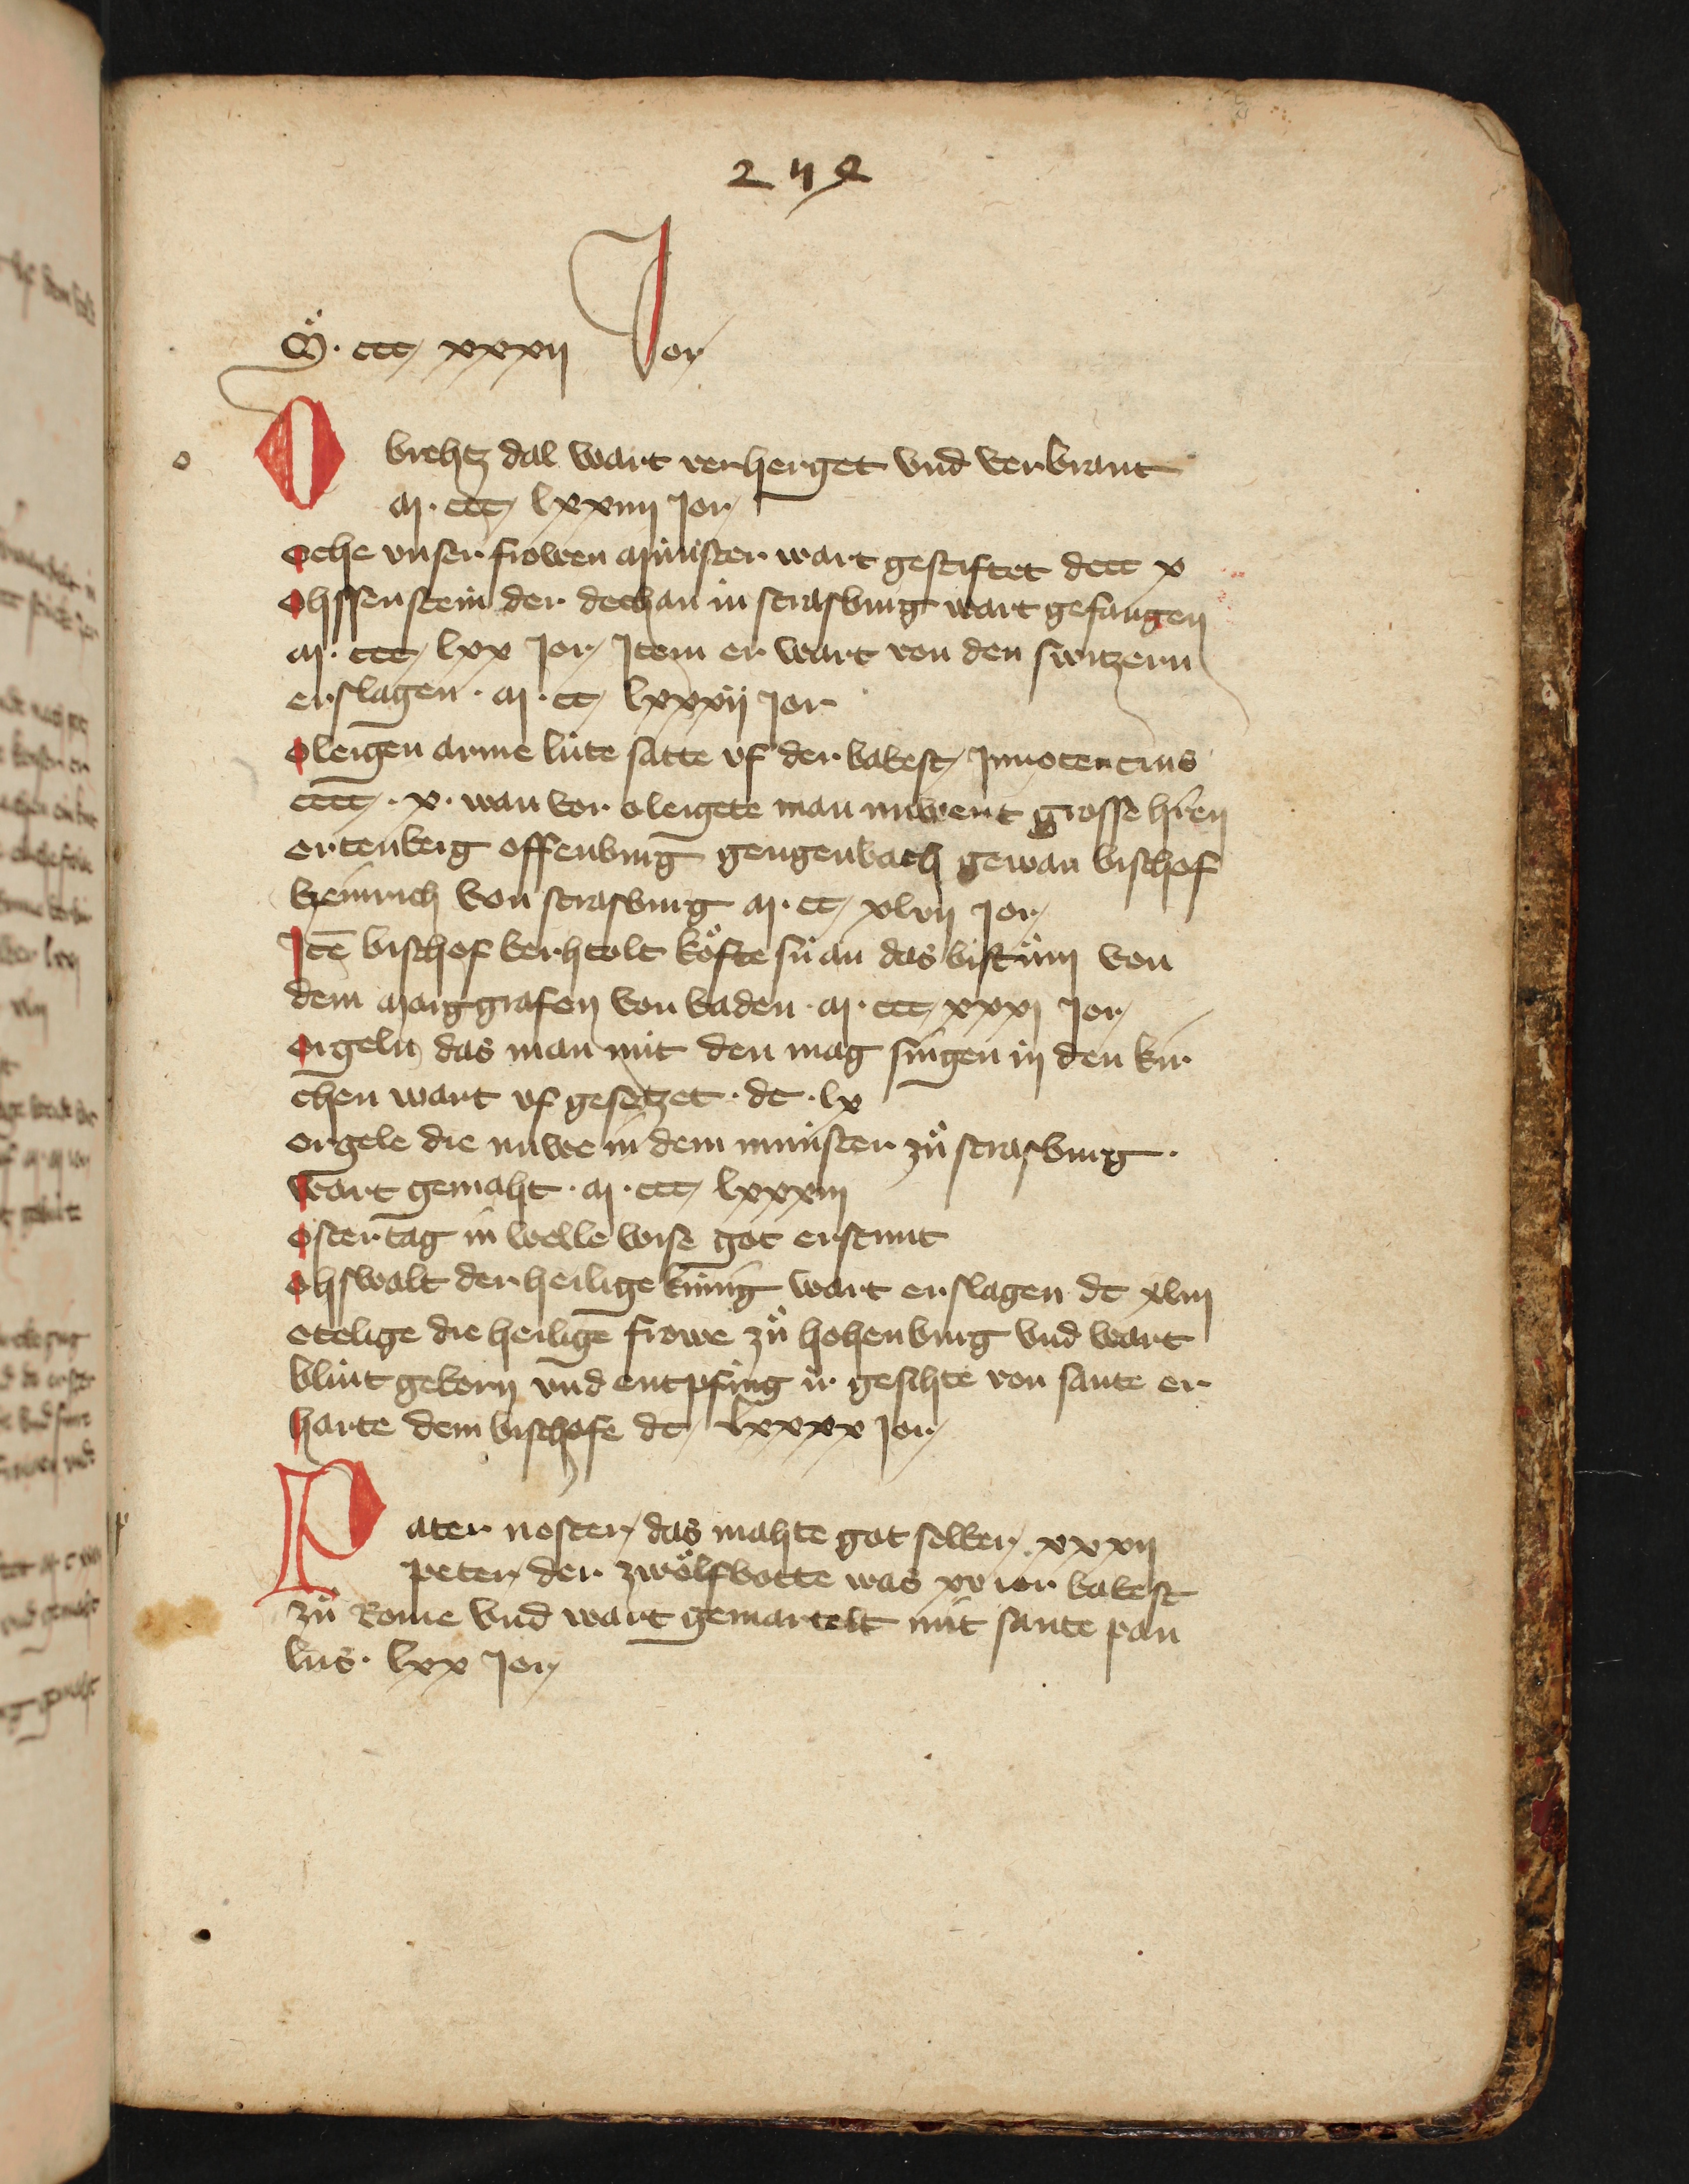 272
M. ccc xxxii Jor
o
Obrehtz dal wart verherget vnd verbrant
M. ccc lxxiiii Jor
oche vnser frowen Münster wart gestiftet dccc x
ohssenstein der dechan in strasburg wart gefangen
M. ccc lxx Jor Item er wart von den switzern
erslagen. M. cc lxxxvij Jor
oleigen arme lüte satte vf der babest Innocencius
cccc. x. wan vor oleigete man niwent grosse hr̄en
ortenberg offenburg gengenbach gewan bischof
heinrich von strasburg M. cc xlvii Jor
Itē bischof berhtolt köfte sü an das bistům von
dem Marggrafen von baden. M. ccc xxxi Jor
orgeln das man mit den mag singen in den kir
chen wart vf gesetzet. dc. lx
orgele die nuwe in dem münster zů strasburg.
wart gemaht. M. ccc lxxxiii
ostertag in welle wise got erstunt
ohswalt der heilige künig wart erslagen dc xliii
otelige die heilige frowe zů hohenburg vnd wart
blint geborn vnd entpfing ir gesihte von sante er
harte dem bischofe dc lxxxx Jor
p
Pater noster das mahte got selber xxxii
peter der zwölfbotte was xxv ior babest
zů Rome vnd wart gemartelt mit sante pau
lus. lxx Jor